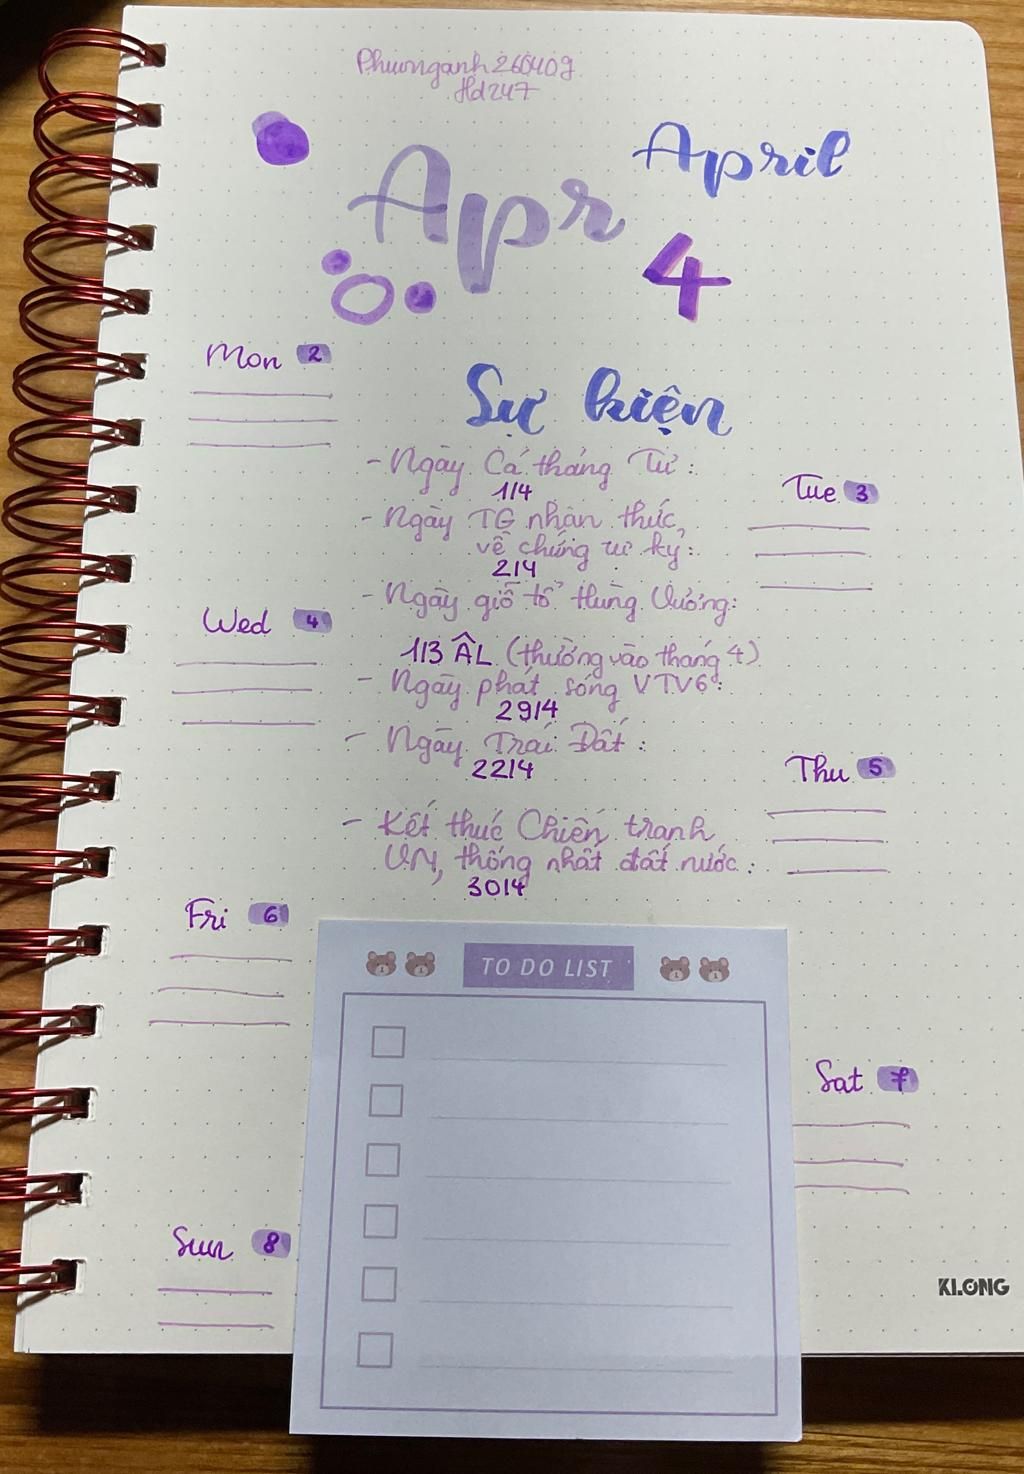 Phươnganh260409
Hd247
April
Apr
4
Mon 2
Sự kiện
- Ngày Cá tháng Tư:
1/4
Tue 3
- Ngày TG nhận thức
về chứng tự kỷ:
2/4
- Ngày giỗ tổ Hùng Vương:
Wed 4
1/3 ÂL (thường vào tháng 4)
- Ngày phát sóng VTV6:
29/4
- Ngày Trái Đất:
22/4
Thu 5
- Kết thúc Chiến tranh
VN, thống nhất đất nước:
30/4
Fri 6
TO DO LIST
Sat 7
Sun 8
KLONG